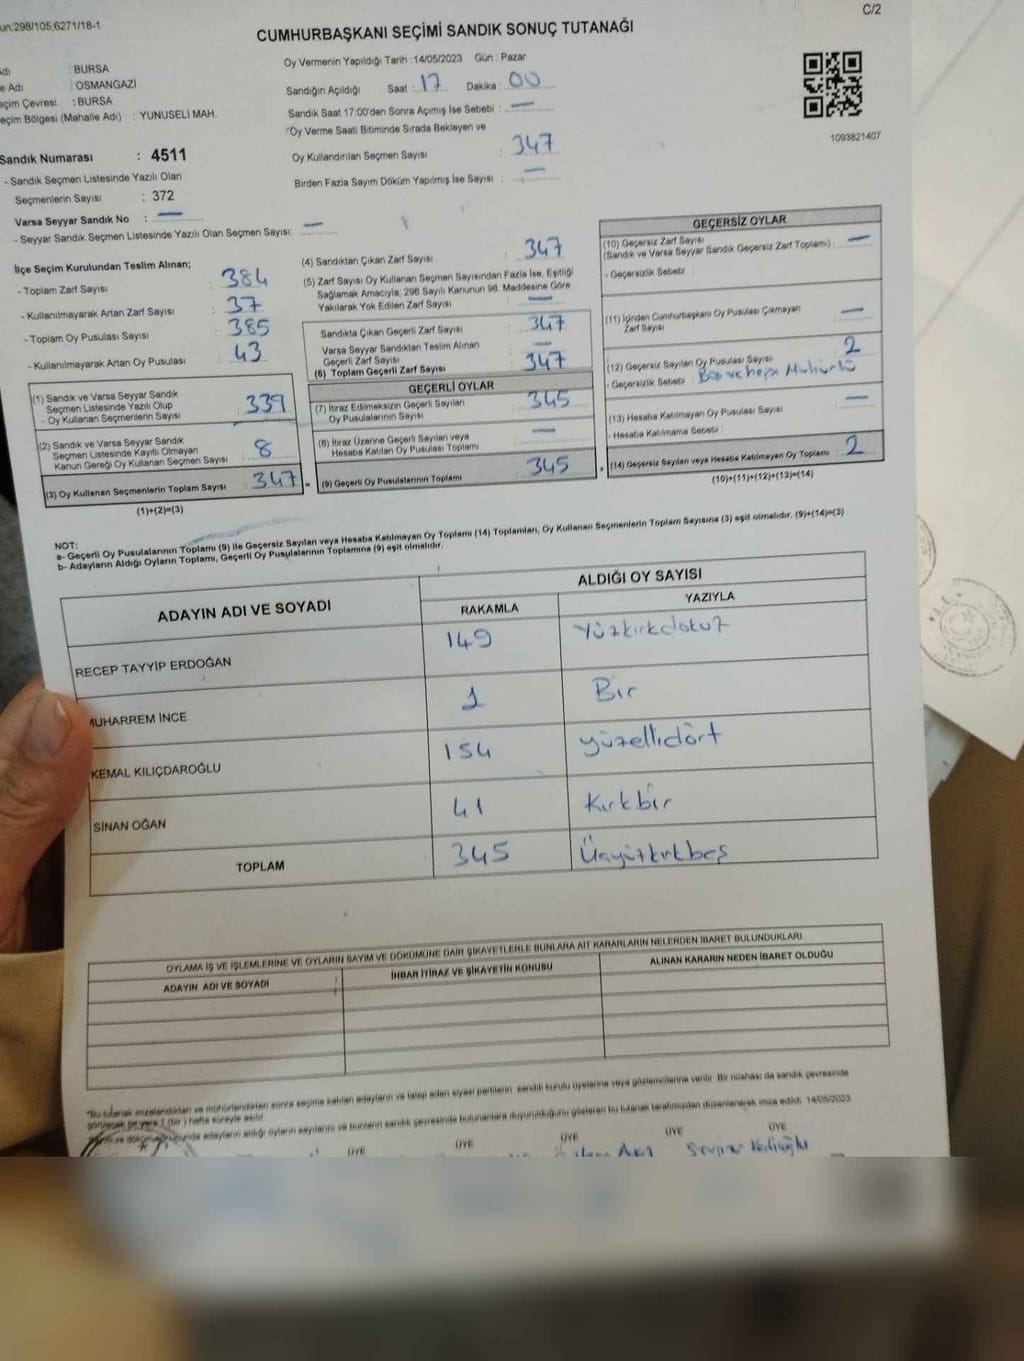 un,298/105,6271/18-1
C/2
CUMHURBAŞKANI SEÇİMİ SANDIK SONUÇ TUTANAĞI
dı : BURSA
e Adı : OSMANGAZİ
eçim Çevresi : BURSA
eçim Bölgesi (Mahalle Adı) : YUNUSELİ MAH.
Sandık Numarası : 4511
- Sandık Seçmen Listesinde Yazılı Olan
Seçmenlerin Sayısı : 372
Varsa Seyyar Sandık No : —
- Seyyar Sandık Seçmen Listesinde Yazılı Olan Seçmen Sayısı: —
Oy Vermenin Yapıldığı Tarih : 14/05/2023 Gün : Pazar
Sandığın Açıldığı Saat : 17 Dakika : 00
Sandık Saat 17:00'den Sonra Açımış İse Sebebi : —
Oy Verme Saati Bitiminde Sırada Bekleyen ve
Oy Kullandırılan Seçmen Sayısı : 347
Birden Fazla Sayım Döküm Yapılmış İse Sayısı : —
1093821407
İlçe Seçim Kurulundan Teslim Alınan;
- Toplam Zarf Sayısı : 384
- Kullanılmayarak Artan Zarf Sayısı : 37
- Toplam Oy Pusulası Sayısı : 385
- Kullanılmayarak Artan Oy Pusulası : 43
(1) Sandık ve Varsa Seyyar Sandık
Seçmen Listesinde Yazılı Olup
- Oy Kullanan Seçmenlerin Sayısı : 339
(2) Sandık ve Varsa Seyyar Sandık
Seçmen Listesinde Kayıtlı Olmayan
Kanun Gereği Oy Kullanan Seçmen Sayısı : 8
(3) Oy Kullanan Seçmenlerin Toplam Sayısı : 347
(1)+(2)=(3)
(4) Sandıktan Çıkan Zarf Sayısı : 347
(5) Zarf Sayısı Oy Kullanan Seçmen Sayısından Fazla İse, Eşitliği
Sağlamak Amacıyla, 298 Sayılı Kanunun 98. Maddesine Göre
Yakılarak Yok Edilen Zarf Sayısı : —
Sandıkta Çıkan Geçerli Zarf Sayısı : 347
Varsa Seyyar Sandıktan Teslim Alınan
Geçerli Zarf Sayısı : —
(6) Toplam Geçerli Zarf Sayısı : 347
GEÇERLİ OYLAR
(7) İtiraz Edilmeksizin Geçerli Sayılan
Oy Pusulalarının Sayısı : 345
(8) İtiraz Üzerine Geçerli Sayılan veya
Hesaba Katılan Oy Pusulası Toplamı : —
(9) Geçerli Oy Pusulalarının Toplamı : 345
GEÇERSİZ OYLAR
(10) Geçersiz Zarf Sayısı
(Sandık ve Varsa Seyyar Sandık Geçersiz Zarf Toplamı) : —
- Geçersizlik Sebebi :
(11) İçinden Cumhurbaşkanı Oy Pusulası Çıkmayan
Zarf Sayısı : —
(12) Geçersiz Sayılan Oy Pusulası Sayısı : 2
- Geçersizlik Sebebi :
(13) Hesaba Katılmayan Oy Pusulası Sayısı : —
- Hesaba Katılmama Sebebi :
(14) Geçersiz Sayılan veya Hesaba Katılmayan Oy Toplamı : 2
(10)+(11)+(12)+(13)=(14)
NOT:
a- Geçerli Oy Pusulalarının Toplamı (9) ile Geçersiz Sayılan veya Hesaba Katılmayan Oy Toplamı (14) Toplamları, Oy Kullanan Seçmenlerin Toplam Sayısına (3) eşit olmalıdır. (9)+(14)=(3)
b- Adayların Aldığı Oyların Toplamı, Geçerli Oy Pusulalarının Toplamına (9) eşit olmalıdır.
ADAYIN ADI VE SOYADI ALDIĞI OY SAYISI
RAKAMLA YAZIYLA
RECEP TAYYİP ERDOĞAN 149 Yüzkırkdokuz
MUHARREM İNCE 1 Bir
KEMAL KILIÇDAROĞLU 154 yüzellidört
SİNAN OĞAN 41 Kırkbir
TOPLAM 345 Üçyüzkırkbeş
OYLAMA İŞ VE İŞLEMLERİNE VE OYLARIN SAYIM VE DÖKÜMÜNE DAİR ŞİKAYETLERLE BUNLARA AİT KARARLARIN NELERDEN İBARET BULUNDUKLARI
ADAYIN ADI VE SOYADI İHBAR İTİRAZ VE ŞİKAYETİN KONUSU ALINAN KARARIN NEDEN İBARET OLDUĞU
"Bu tutanak imzalandıktan ve mühürlendikten sonra seçime katılan adayların ve talep eden siyasi partilerin sandık kurulu üyelerine veya gözlemcilerine verilir. Bir nüshası da sandık çevresinde
görülecek bir yere 1 (bir) hafta süreyle asılır.
adayların aldığı oyların sayılarını ve bunların sandık çevresinde bulunanlara duyurulduğunu gösteren bu tutanak tarafımızdan düzenlenerek imza edildi. 14/05/2023
ÜYE ÜYE ÜYE ÜYE ÜYE